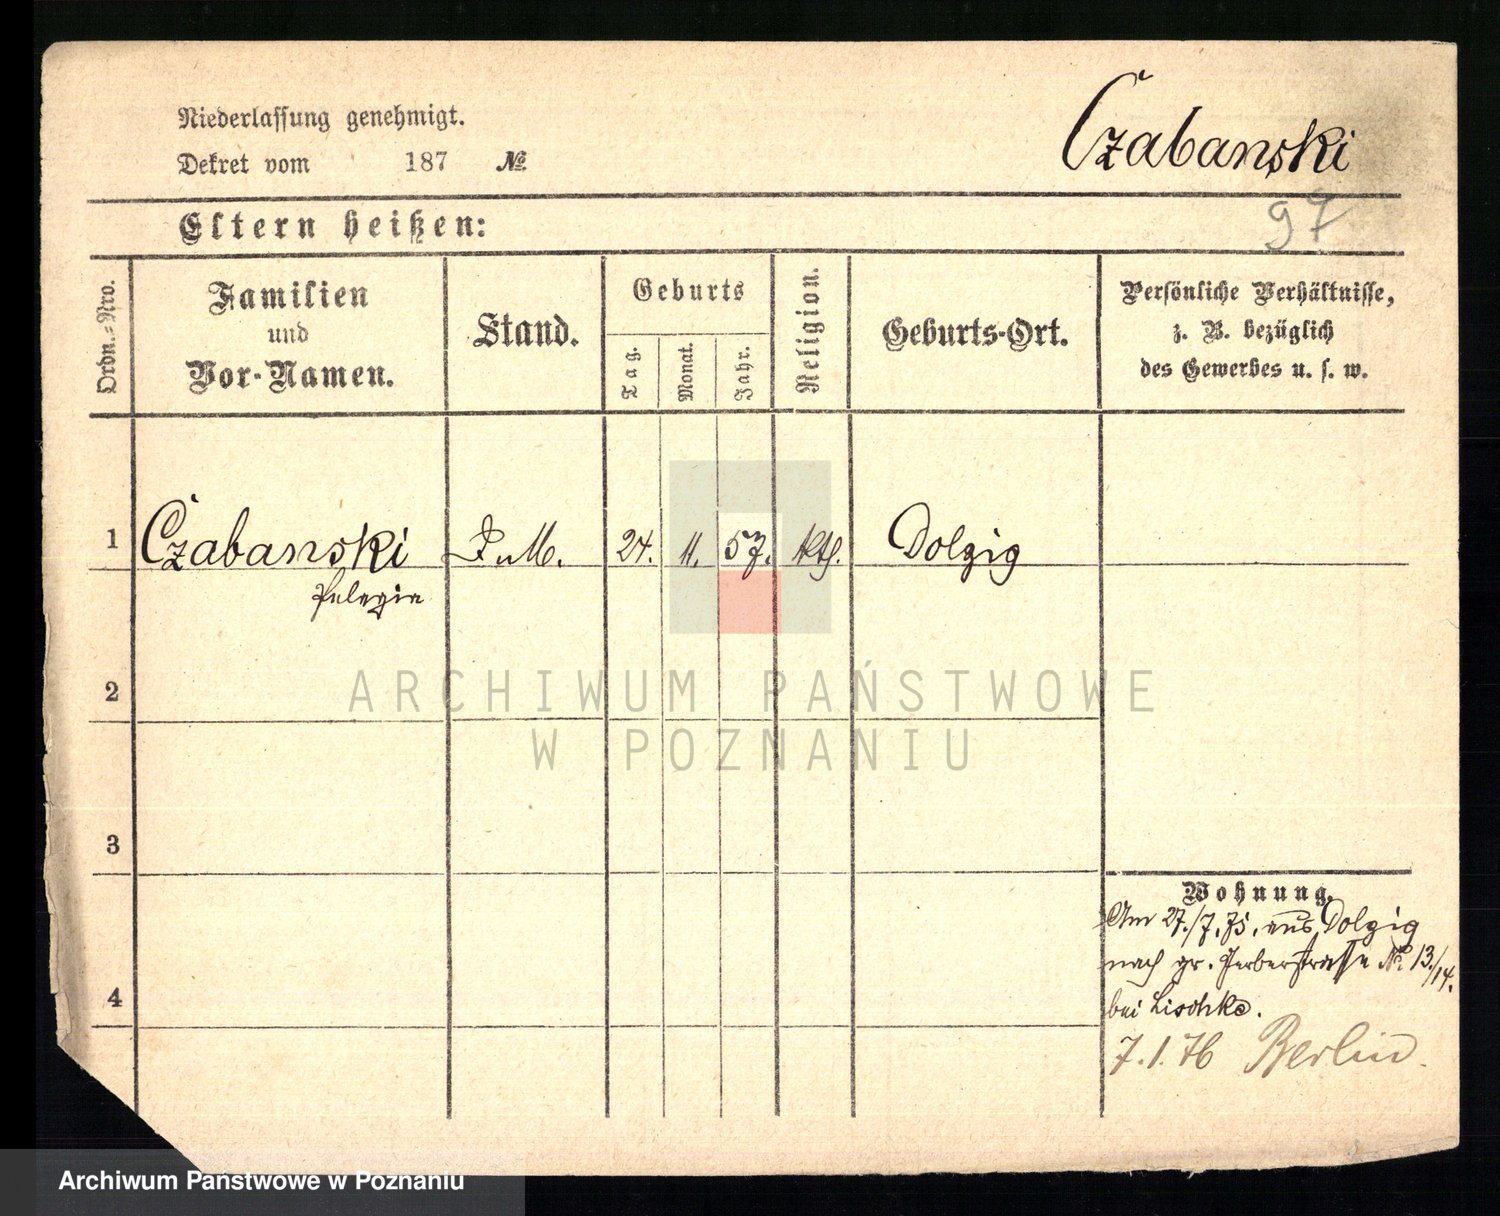 Niederlassung genehmigt.
Dekret vom 187 №
Czabanski
97
Eltern heißen:
Ordn.-Nro.
Familien
und
Vor-Namen.
Stand.
Geburts
Tag.
Monat.
Jahr.
Religion.
Geburts-Ort.
Persönliche Verhältnisse,
z. B. bezüglich
des Gewerbes u. s. w.
1 Czabanski 24. 11. 57. kth. Dolzig
Pelagia
2
ARCHIWUM PAŃSTWOWE
W POZNANIU
3
Wohnung.
Am 27./7.75. aus Dolzig
nach gr. Gerberstrasse No. 13./14.
bei Lischke.
4
7.1.76 Berlin.
Archiwum Państwowe w Poznaniu